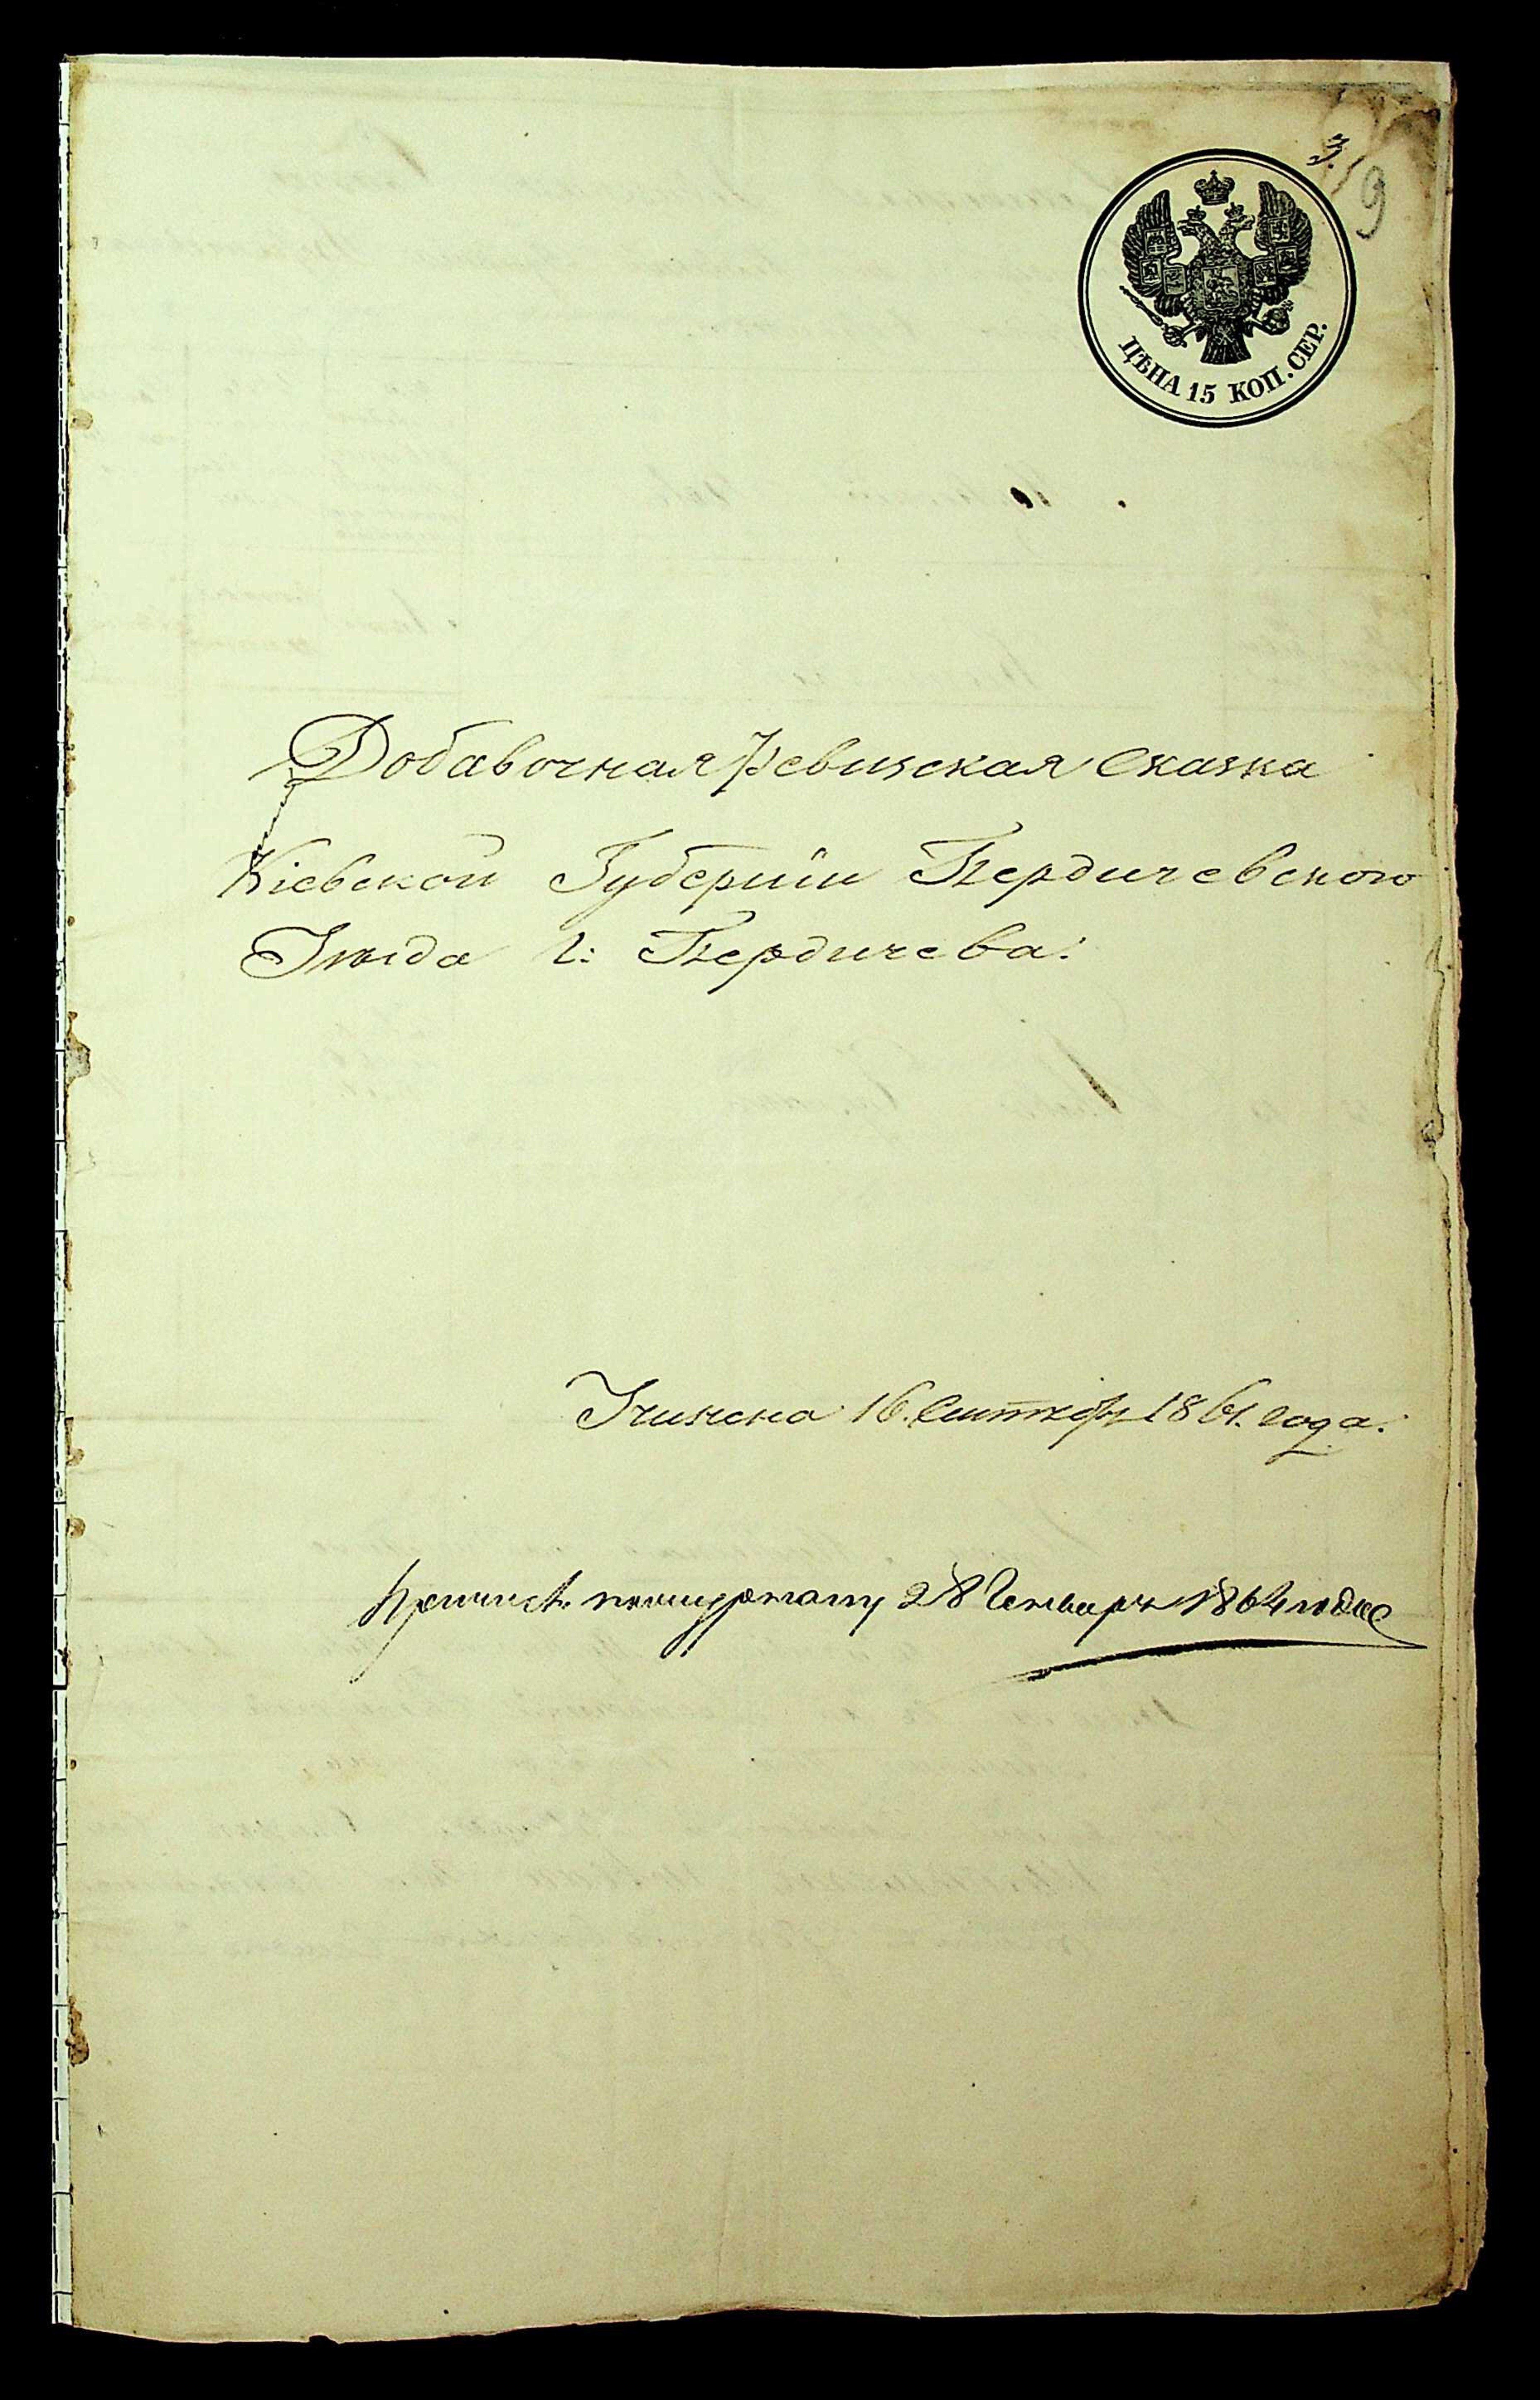 3.
19
ЦѢНА 15 КОП. СЕР.
Добавочная Ревизская Сказка
Кіевской Губерніи Бердичевского
Уѣзда Г: Бердичева:
Учинена 16. Сентября 1861. года.
28 Генваря 1864 года